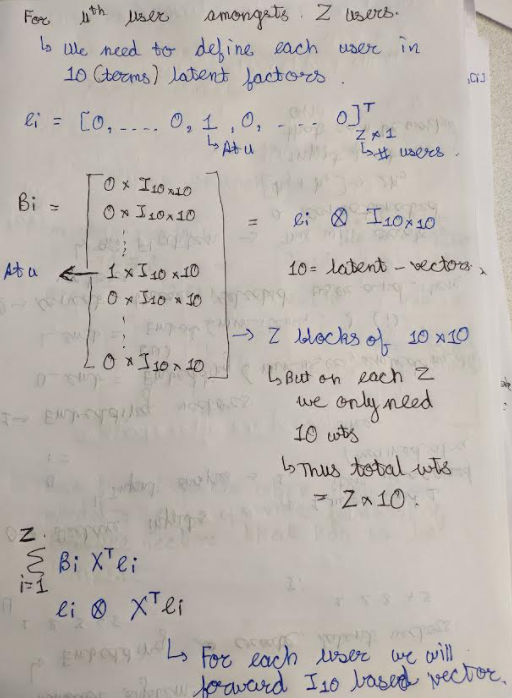 For uth user amongsts Z users.
↳ We need to define each user in
10 (terms) latent factors.
ei = [0, .... 0, 1, 0, .... 0]ᵀ Z×1
↳ At u ↳ # users.
Bi = [ 0 × I10×10
0 × I10×10
⋮
At u ← 1 × I10×10
0 × I10×10
⋮
0 × I10×10 ]
= ei ⊗ I10×10
10 = latent-vectors.
→ Z blocks of 10×10
↳ But on each Z
we only need
10 wts
↳ Thus total wts
= Z×10.
Z
Σ Bi Xᵀei
i=1
ei ⊗ Xᵀei
↳ For each user we will
forward I10 based vector.